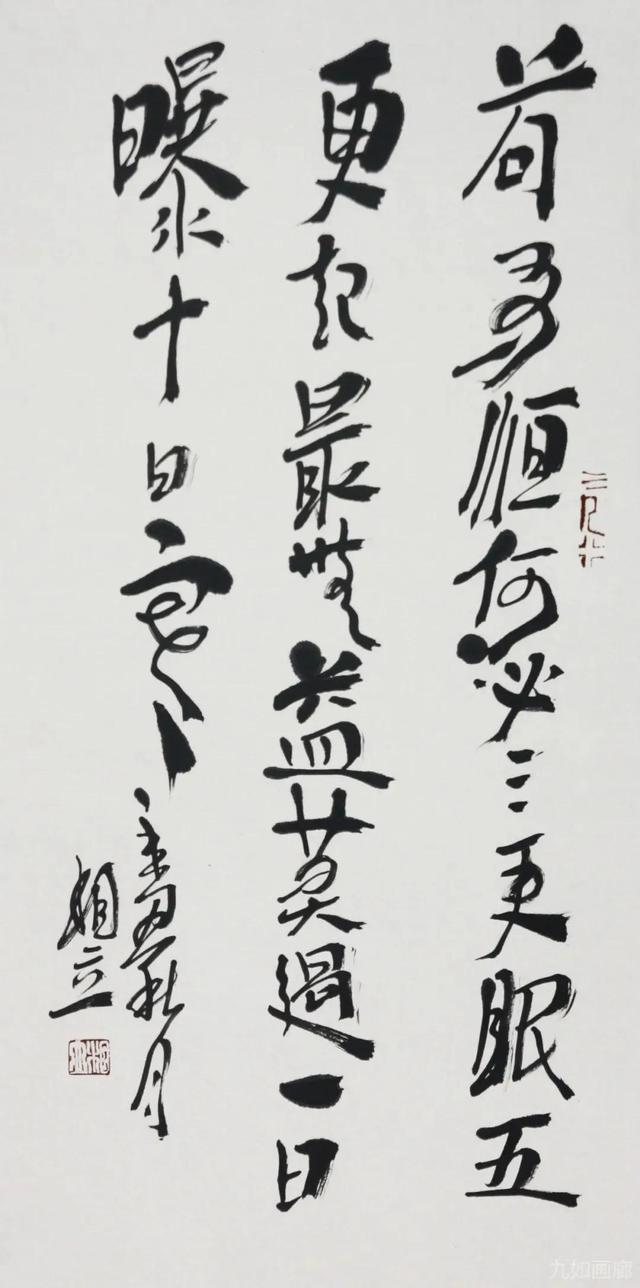 苟有恒何必三更眠五
更起最無益莫過一日
曝十日寒
秋月
九如画廊